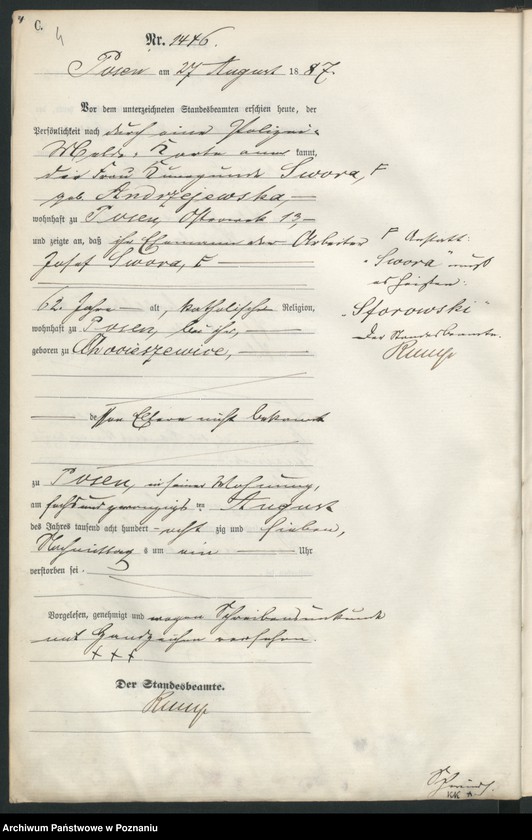 C.
4
Nr. 1446.
Posen am 27 August 1887.
Vor dem unterzeichneten Standesbeamten erschien heute, der
Persönlichkeit nach durch eine Polizei-
Melde-Karte aner kannt,
die Frau Kunegunde Swora, F
geb. Andrzejewska,
wohnhaft zu Posen, Osterweck 13,
und zeigte an, daß ihr Ehemann der Arbeiter
Josef Swora, F
62 Jahre alt, katholischer Religion,
wohnhaft zu Posen, bei ihr,
geboren zu Chocieszewice,
dessen Eltern nicht bekannt
zu Posen, in seiner Wohnung,
am sechsundzwanzigsten August
des Jahres tausend acht hundert acht zig und sieben,
Nachmittags um ein Uhr
verstorben sei.
Vorgelesen, genehmigt und wegen Schreibensunkunde
mit Handzeichen versehen.
+++
Der Standesbeamte.
Rump
F Anstatt:
"Swora" muß
es heißen:
"Sforowski"
Der Standesbeamte.
Rump
Archiwum Państwowe w Poznaniu